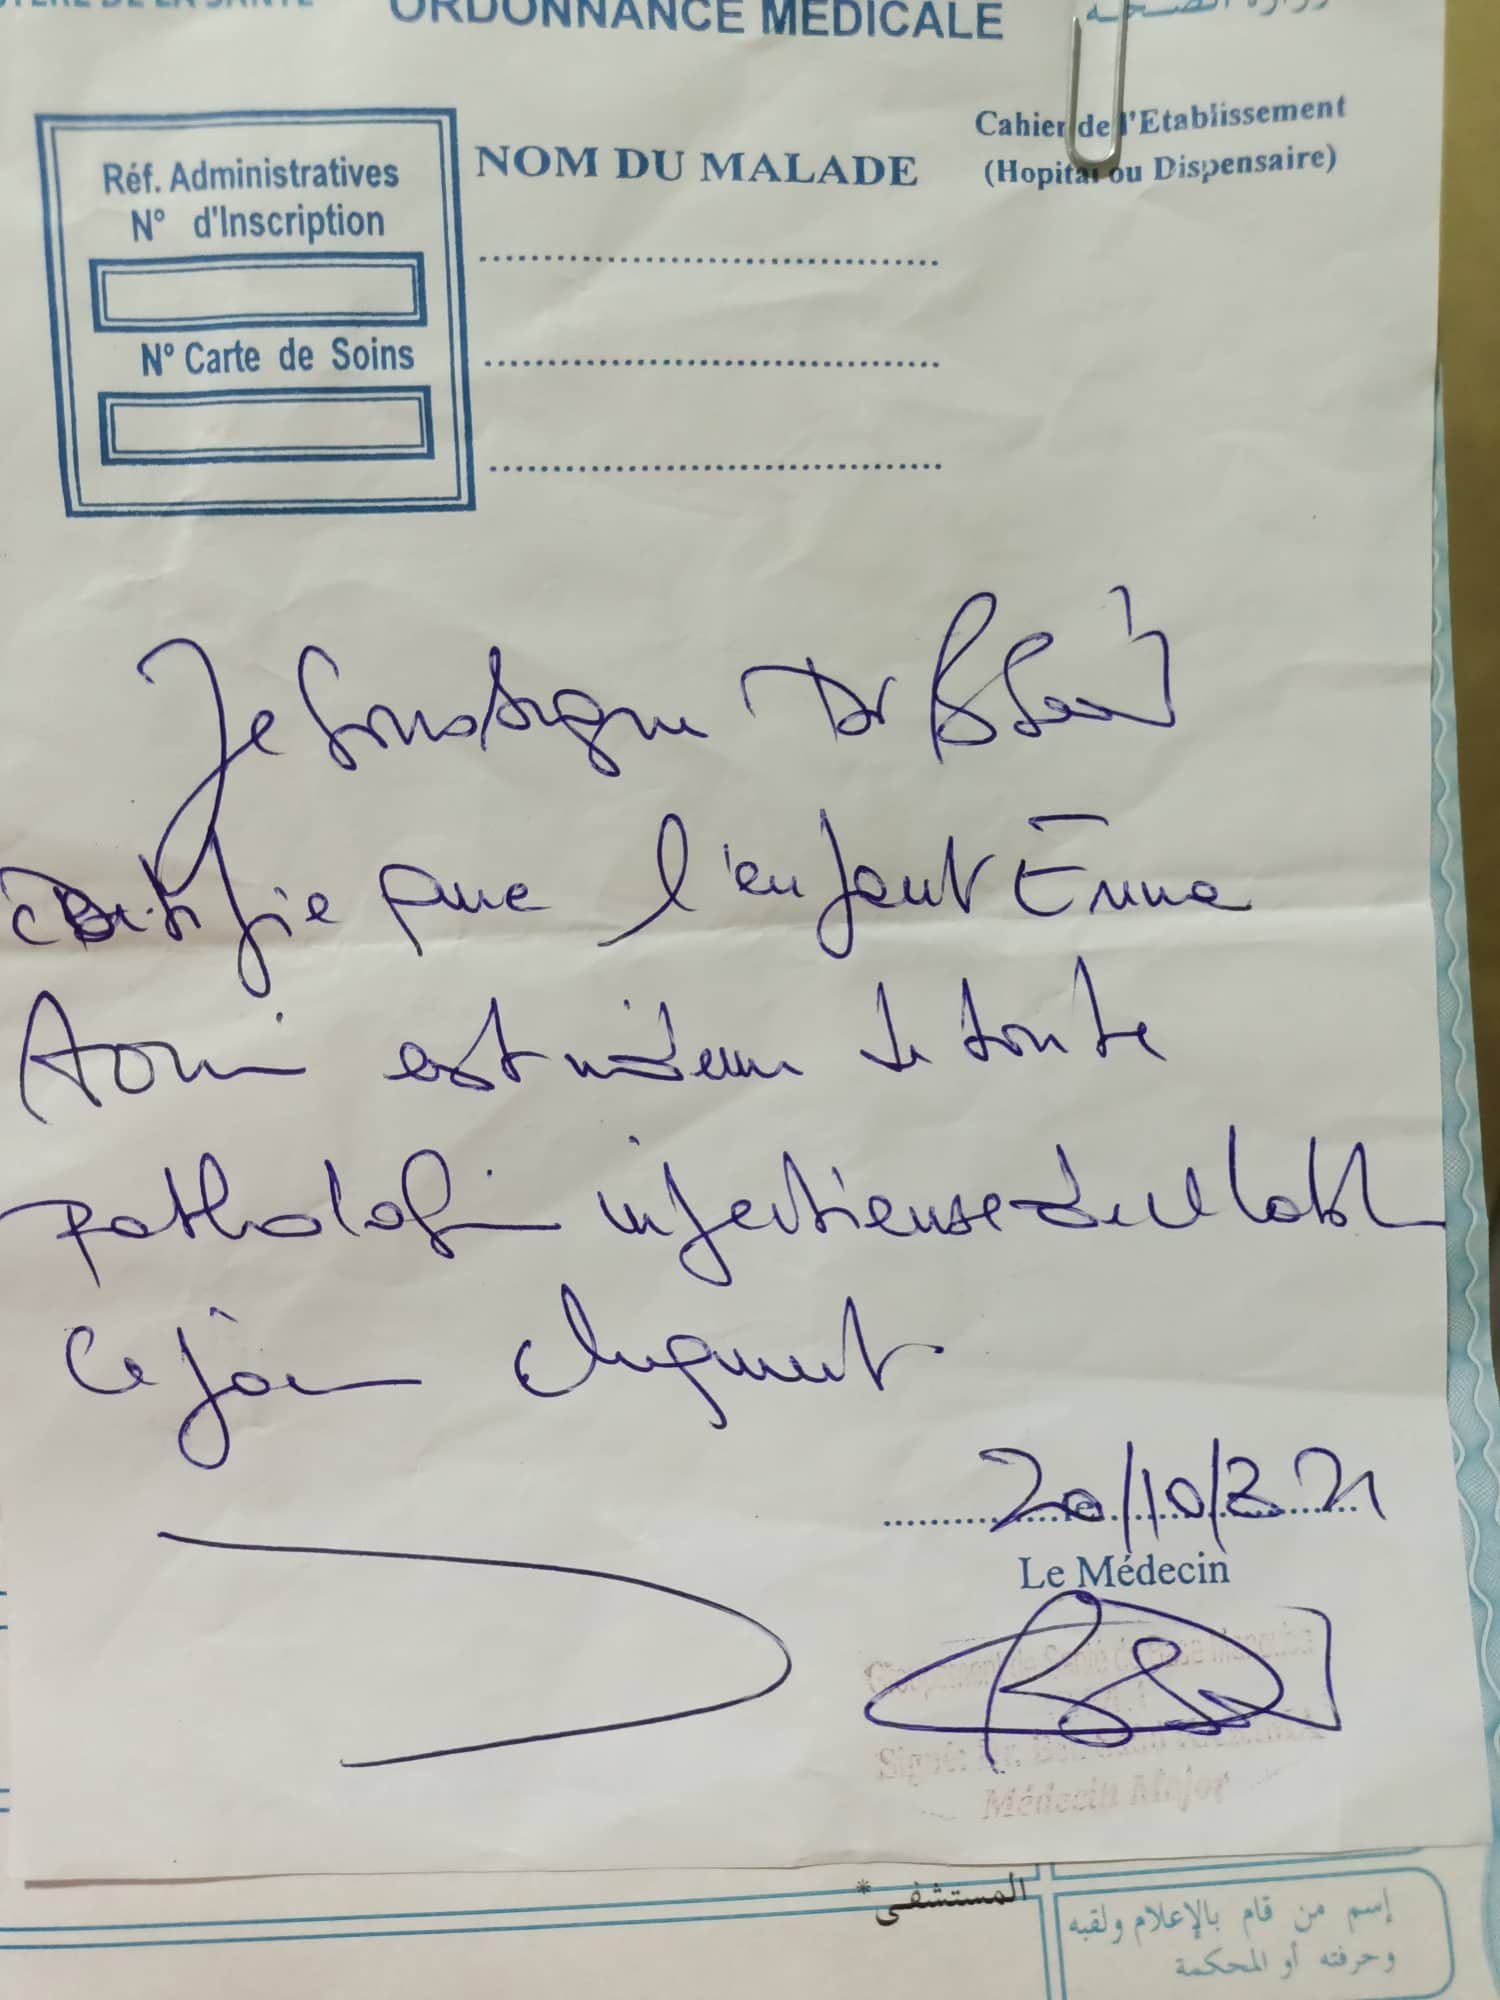 ORDONNANCE MEDICALE
Réf. Administratives
N° d'Inscription
N° Carte de Soins
NOM DU MALADE
Cahier de l'Etablissement
(Hopital ou Dispensaire)
Je Soussigne Dr
certifie que l'enfant
est indemne de toute
pathologie infectieuse decelable
ce jour
20/10/2021
Le Médecin
Groupement de Santé de Base Manouba
Signé: Dr. Ben
Médecin Major
المستشفى *
إسم من قام بالإعلام ولقبه
وحرفته أو المحكمة